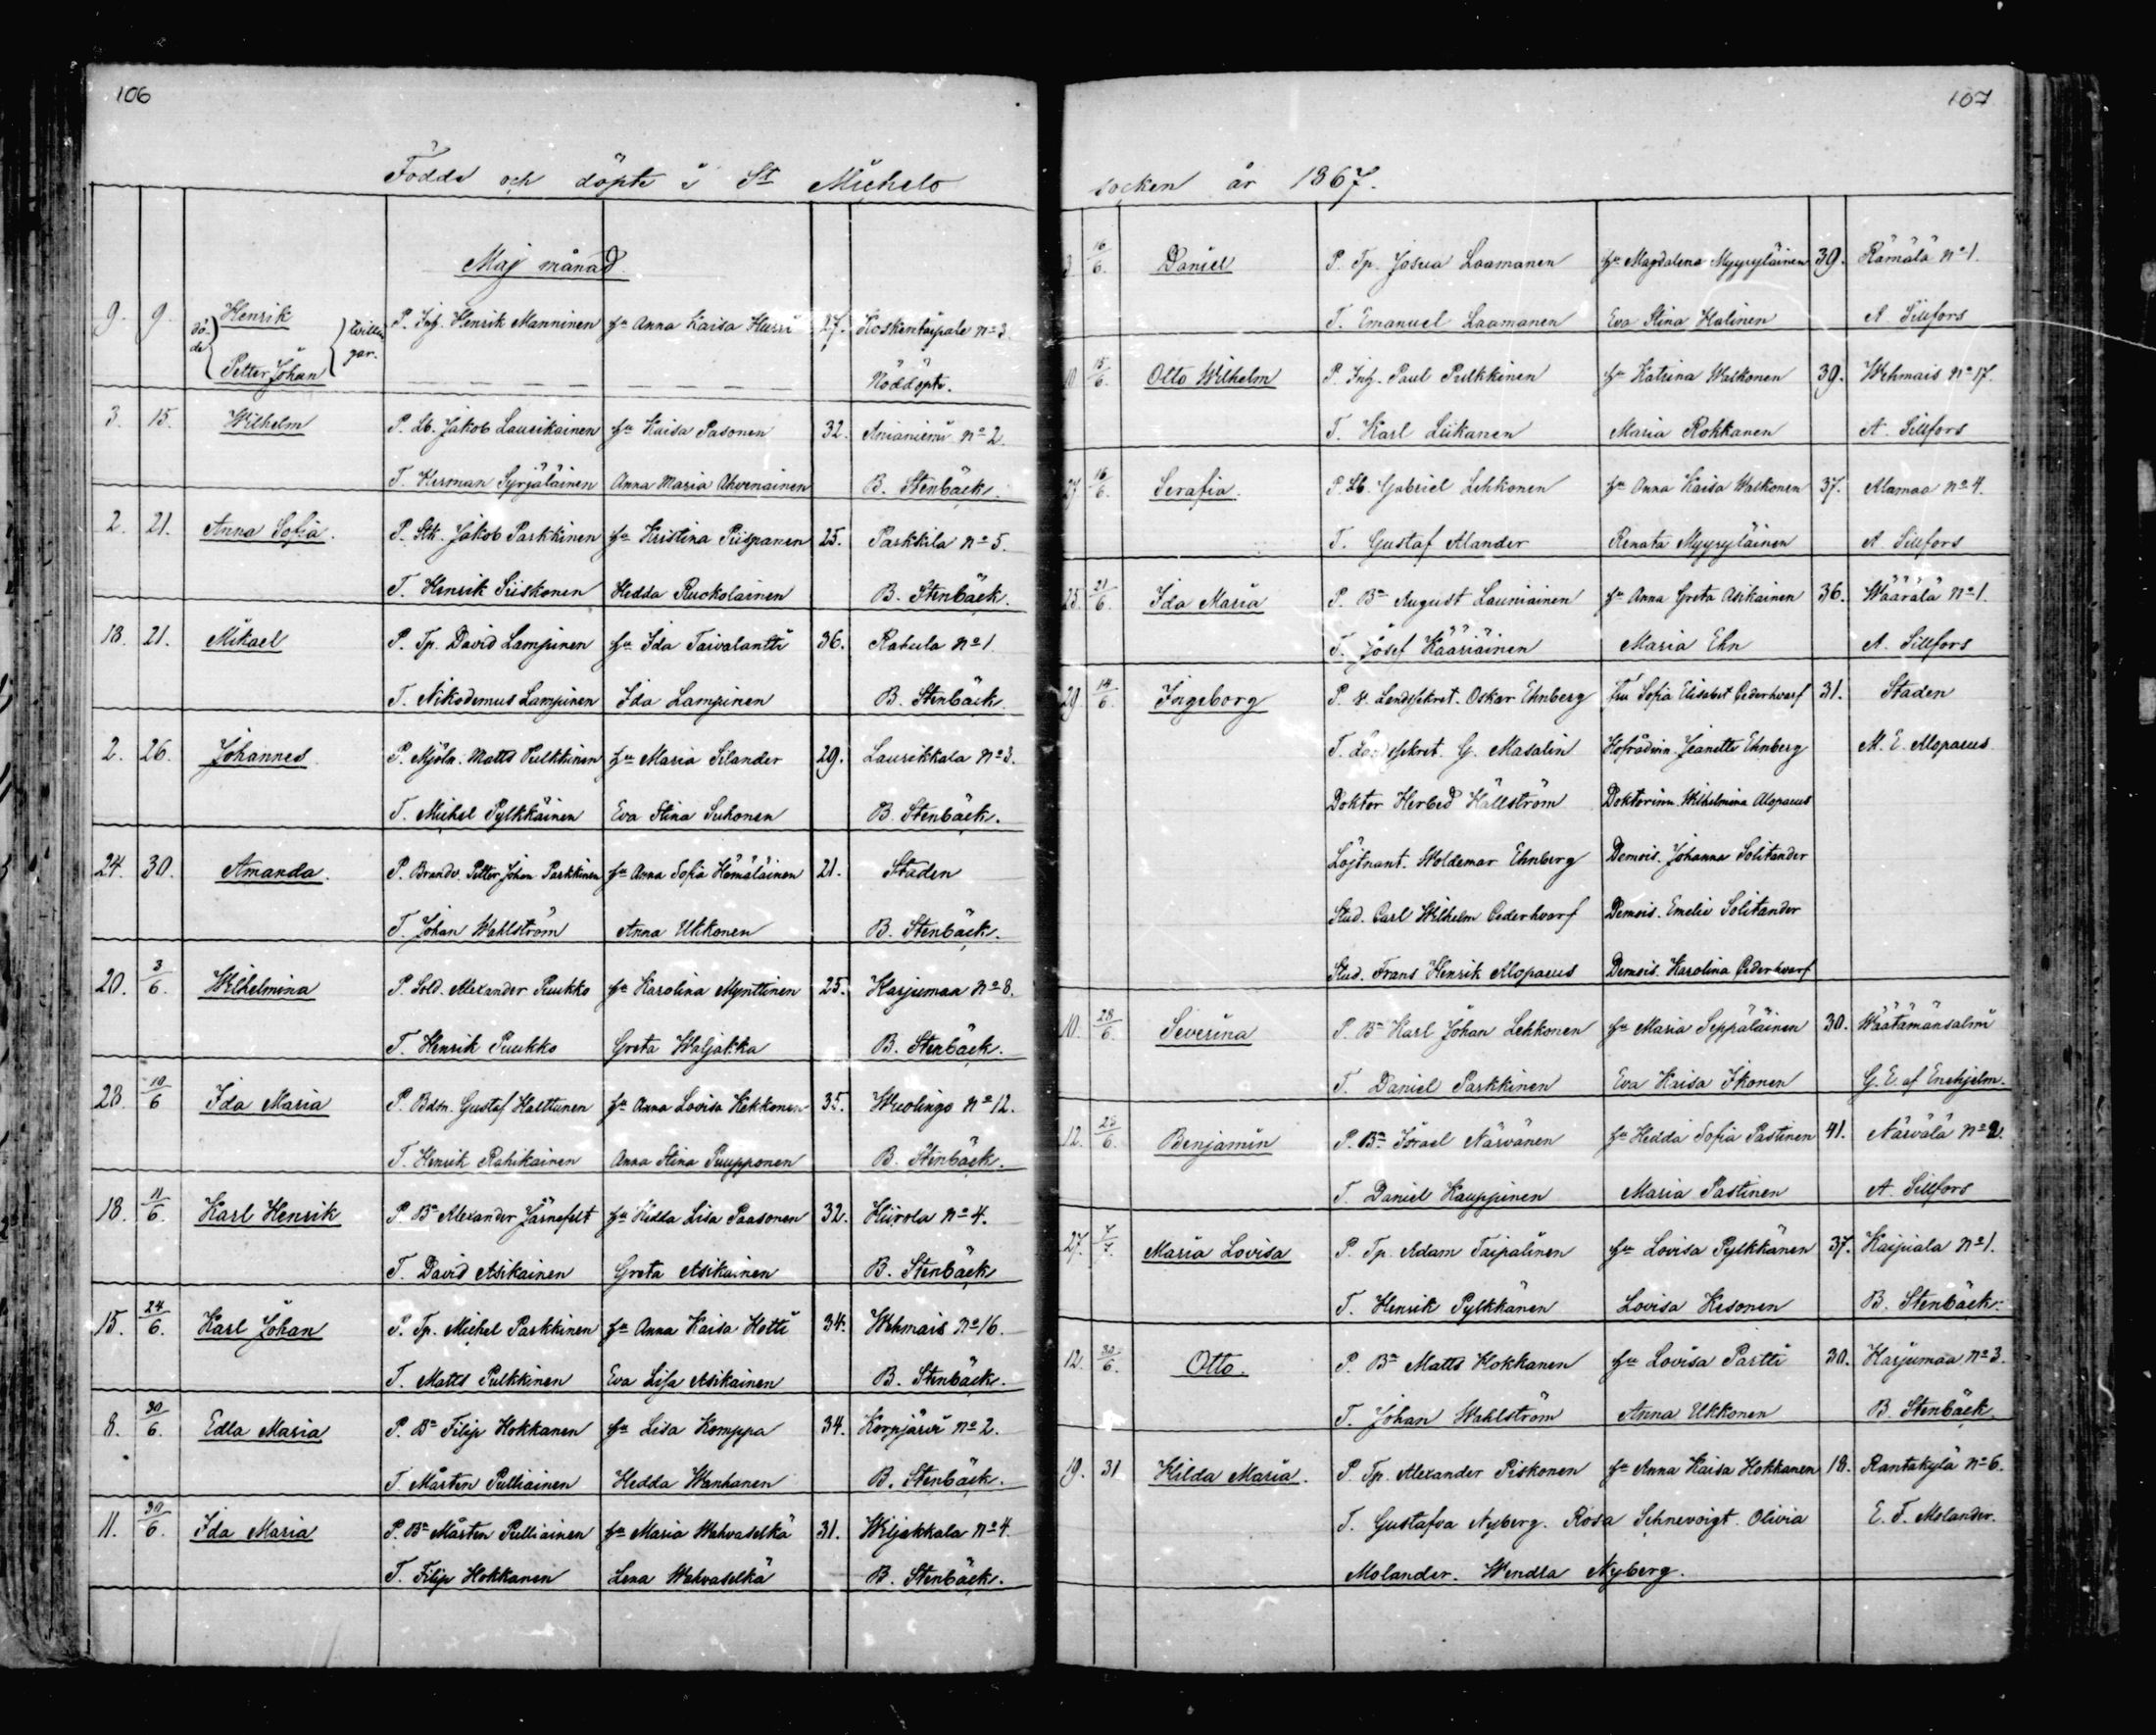 106
Födde och döpte i St Michels
Maj månad
9. 9. dö- de Henrik P. Inh. Henrik Manninen hu Anna Kaisa Hurri 27. Koskentaipale No 3.
Petter Johan twillin gar. Nöddöpte.
3. 15. Wilhelm P. Lb. Jakob Laurikainen hu Kaisa Pasonen 32. Anianiemi No 2.
T. Herman Syrjäläinen Anna Maria Ahvenainen B. Stenbäck.
2. 21. Anna Sofia. P. Stk. Jakob Parkkinen hu Kristina Piispanen 25. Parkkila No 5.
T. Henrik Siiskonen Hedda Ruokolainen B. Stenbäck.
18. 21. Mikael P. Tp. David Lampinen hu Ida Taivalantti 36. Rahula No 1
T. Nikodemus Lampinen Ida Lampinen B. Stenbäck.
2. 26. Johannes. P. Mjöln. Matts Pulkkinen hu Maria Silander 29. Laurikkala No 3.
T. Michel Pylkkäinen Eva Stina Suhonen B. Stenbäck.
24. 30. Amanda. P. Brandv. Petter Johan Parkkinen hu Anna Sofia Hämäläinen 21. Staden
T. Johan Wahlström Anna Ukkonen B. Stenbäck.
20. 3/6. Wilhelmina P. Sold. Alexander Puukko hu Karolina Mynttinen 25. Harjumaa No 8.
T. Henrik Puukko Greta Waljakka B. Stenbäck.
28. 10/6 Ida Maria P. Bdsn. Gustaf Halttunen hu Anna Lovisa Kekkonen 35. Wuolingo No 12.
T. Henrik Rahikainen Anna Stina Puupponen B. Stenbäck.
18. 11/6. Karl Henrik P. Bn Alexander Järnefelt hu Hedda Lisa Paasonen 32. Hiirola No 4.
T. David Asikainen Greta Asikainen B. Stenbäck
15. 24/6. Karl Johan P. Tp. Michel Parkkinen hu Anna Kaisa Hotti 34. Wehmais No 16.
T. Matts Pulkkinen Eva Lisa Asikainen B. Stenbäck.
8. 30/6. Edla Maria P. Bn Filip Hokkanen hu Lisa Komppa 34. Korpjärvi No 2.
T. Mårten Pulliainen Hedda Wanhanen B. Stenbäck.
11. 30/6. Ida Maria P. Bn Mårten Pulliainen hu Maria Wahvaselkä 31. Wiljakkala No 4.
T. Filip Hokkanen Lena Wahvaselkä B. Stenbäck.
107
socken år 1867.
3 16/6. Daniel P. Tp. Josua Laamanen hu Magdalena Myyryläinen 39. Rämälä No 1.
T. Emanuel Laamanen Eva Stina Halinen A Sillfors
10 15/6. Otto Wilhelm P. Inh. Paul Pulkkinen hu Katrina Walkonen 39. Wehmais No 17.
T. Karl Liikanen Maria Rokkanen A. Sillfors
27 16/6. Serafia. P. Lb. Gabriel Lehkonen hu Anna Kaisa Walkonen 37. Alamaa No 4.
T. Gustaf Alander Renata Myyryläinen A. Sillfors
25. 21/6. Ida Maria P. Bn August Launiainen hu Anna Greta Asikainen 36. Wäärälä No 1.
T. Josef Kääriäinen Maria Ehn A. Sillfors
29. 14/6. Ingeborg P. v. Landssekret. Oskar Ehnberg Fru Sofia Elisabet Cederhvarf 31. Staden
T. Landssekret. G. Masalin Hofrådinn. Jeanette Ehnberg M. E. Alopaeus
Doktor Herbed Hällström Doktorinn. Wilhelmina Alopaeus
Löjtnant. Woldemar Ehnberg Demois. Johanna Solitander
Stud. Carl Wilhelm Cederhvarf Demois. Emelie Solitander
Stud. Frans Henrik Alopaeus Demois. Karolina Cederhvarf
10. 28/6. Severina P. Bn Karl Johan Lehkonen hu Maria Seppäläinen 30. Wäätämänsalmi
T. Daniel Parkkinen Eva Kaisa Ikonen G. E. af Enehjelm.
12. 23/6. Benjamin P. Bn Israel Närvänen hu Hedda Sofia Pastinen 41. Närvälä No 2.
T. Daniel Kauppinen Maria Pastinen A. Sillfors
27. 7/7. Maria Lovisa P. Tp. Adam Taipalinen hu Lovisa Pylkkänen 37. Kaipiala No 1.
T. Henrik Pylkkänen Lovisa Kesonen B. Stenbäck.
12. 30/6. Otto. P. Bn Matts Hokkanen hu Lovisa Partti 30. Harjumaa No 3.
T. Johan Wahlström Anna Ukkonen B. Stenbäck.
19. 31 Hilda Maria. P. Tp. Alexander Piskonen hu Anna Kaisa Hokkanen 18. Rantakylä No 6.
T. Gustafva Nyberg. Rosa Schnevoigt. Olivia E. F. Molander.
Molander. Wendla Nyberg.